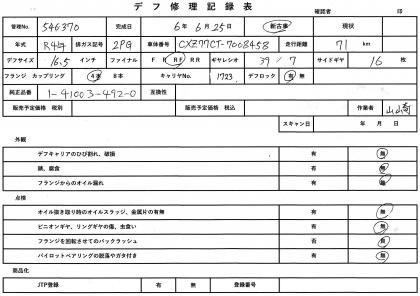 デフ修理記録表
確認者 印
管理No. 546370 完成日 6年6月25日 新古車 現状
年式 R4年 排ガス記号 2PG 車体番号 CXZ77CT-7008458 走行距離 71 km
デフサイズ 16.5 インチ ファイナル F R RF RR ギヤレシオ 39/7 サイドギヤ 16 枚
フランジ カップリング 4本 8本 キャリヤNo. 1723 デフロック 有 無
純正品番 1-41003-492-0 互換性
販売予定価格 税別 販売予定価格 税込 作業者 山崎
スキャン日 年 月 日
外観
デフキャリアのひび割れ、破損 有 無
錆、腐食 有 無
フランジからのオイル漏れ 有 無
点検
オイル抜き取り時のオイルスラッジ、金属片の有無 有 無
ピニオンギヤ、リングギヤの傷、虫食い 有 無
フランジを回転させてのバックラッシュ 否 良
パイロットベアリングの脱落やガタ付き 有 無
商品化
JTP登録 有 無 登録番号